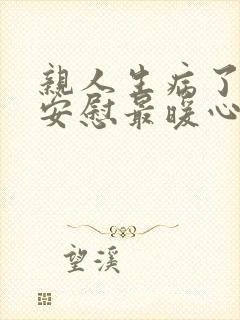 亲人生病了
安慰最暖心
望溪